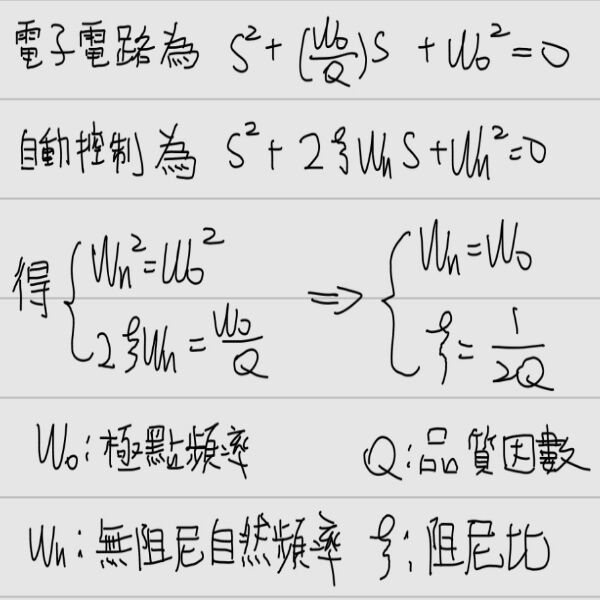 電子電路為 S²+(ω₀/Q)S +ω₀²=0
自動控制為 S²+2ξωₙS+ωₙ²=0
得{ωₙ²=ω₀² ⇒ {ωₙ=ω₀
2ξωₙ=ω₀/Q ξ=1/2Q
ω₀:極點頻率 Q:品質因數
ωₙ:無阻尼自然頻率 ξ:阻尼比